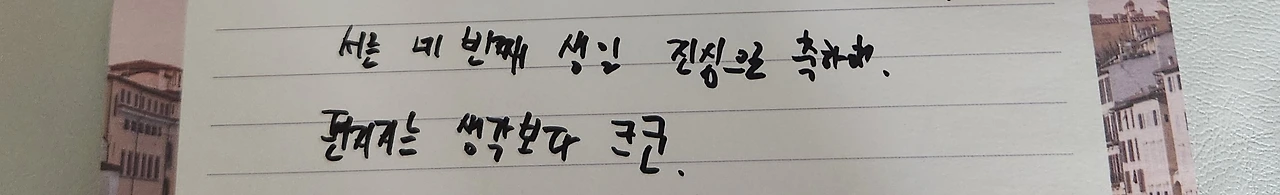 서른 네 번째 생일 진심으로 축하해.
편지지는 생각보다 크군.